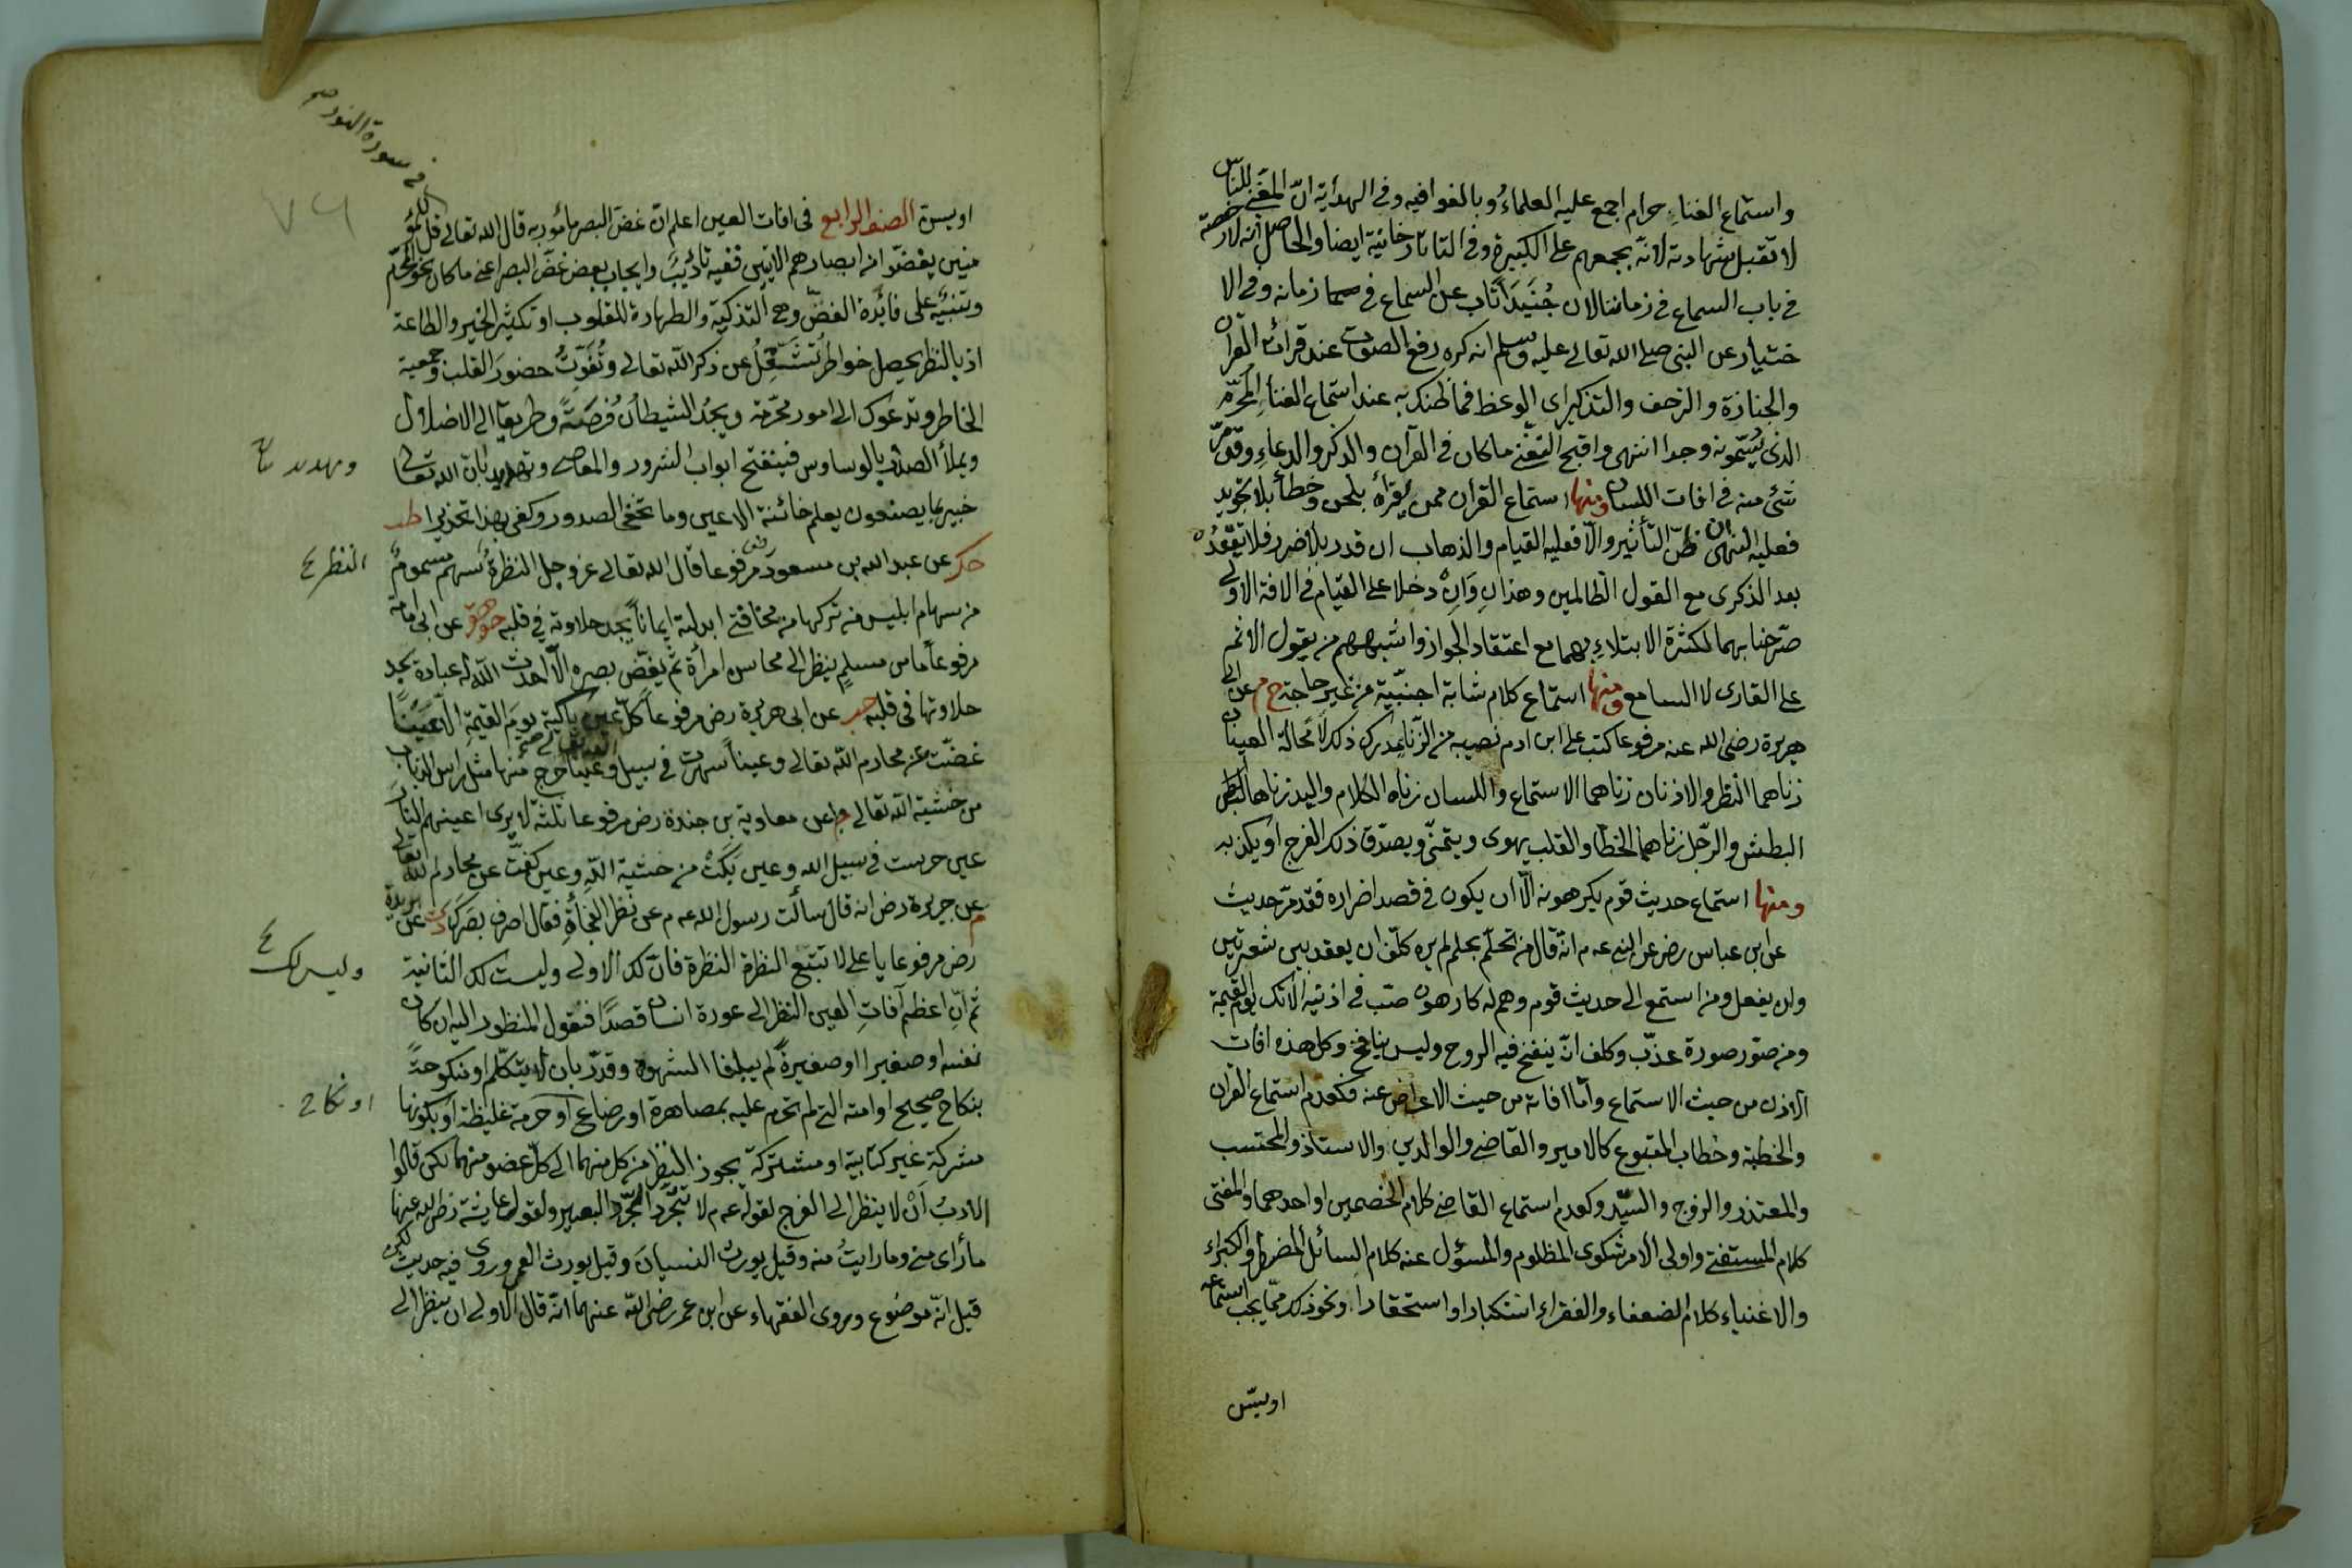 واستماع الغناء حرام اجمع عليه العلماء وبالغوا فيه وفي الهداية انّ المغني للناس
لا تقبل شهادته لانه يجمعهم على الكبيرة وفي التاتارخانية ايضا والحاصل انه لا رخصة
في باب السماع في زماننا لان جُنَيدًا تاب عن السماع في زمانه وفي الا
ختيار عن النبي صلى الله تعالى عليه وسلم انه كره رفع الصوت عند قراءة القرآن
والجنازة والزحف والتذكير اى الوعظ فما ظنك به عند استماع الغناء المحرّم
الذى يُسَمّونه وجدا انتهى واقبح التغني ماكان في القرآن والذكر والدعاء وقد مرّ
شئ منه في افات اللسان ومنها استماع القران ممن يقرأه بلحن وخطأ بلا تجويد
فعليه النهى ان ظنّ التأثير والّا فعليه القيام والذهاب ان قدر بلا ضرر فلا تقعد
بعد الذكرى مع القوم الظالمين وهذانِ وَاِنْ دخلا على القيام في الافة الاولى
صرّحنا بهما لكثرة الابتلاء بهما مع اعتقاد الجواز واشبههم من يقول الاثم
على القارى لا السامع ومنها استماع كلام شابة اجنبّية من غير حاجة خ م عن ابى
هريرة رضى الله عنه مرفوعا كتب على ابن ادم نصيبه من الزّنا مدرك ذلك لا محالة العينان
زناهما النظر والاذنان زناهما الاستماع واللسان زناه الكلام واليد زناها البطش
البطش والرّجل زناهما الخطا والقلب يهوى ويتمنّى ويصدّق ذلك الفرج او يكذبه
ومنها استماع حديث قوم يكرهونه الّا ان يكون في قصد اضراره فقد مرّ حديث
عن ابن عباس رض عن النبي عه م انه قال من تحلّم بحلم لم يره كلّف ان يعقد بين شعيرتين
ولن يفعل ومن استمع الى حديث قوم وهم له كارهون صبّ في اذنيه الانك يوم القيمة
ومن صوّر صورة عذّب وكلف انّ ينفخ فيه الروح وليس بنافخ وكل هذه افات
الاذن من حيث الاستماع وأمّا افاته من حيث الاعراض عنه فكعدم استماع القران
والخطبة وخطاب المتبوع كالامير والقاضى والوالدين والاستاذ والمحتسب
والمعتذر والزوج والسيّد وكعدم استماع القاضى كلام الخصمين او احدهما والمفتى
كلام المستفتى واولى الامر شكوى المظلوم والمسؤل عنه كلام السائل المضرط والكبراء
والاغنياء كلام الضعفاء والفقراء استكبارا او استحقارا ونحو ذلك ممّا يجب استماعه
او يسنّ
في سورة النور
٧٦
او يسن الصنف الرابع في افات العين اعلم انّ غضّ البصر مأمور به قال الله تعالى قل للمؤ
منين يغضّوا من ابصارهم الايتين ففيه تأديبٌ وايجاب بعض غضّ البصر اعني ماكان نحو المحرّم
وتنبيه على فائدة الغضّ وهى التذكية والطهارة للقلوب او تكثير الخير والطاعة
اذ بالنظر يحصل خواطر تُشَغِّلُ عن ذكر الله تعالى وتُفَوِّتُ حضورَ القلب وجمعية
الخاطر وتدعوك الى امور محرّمة ويجدُ الشيطان فُرصَةً وطريقا الى الاضلال
ويملأ الصدر بالوساوس فينفتح ابواب الشرور والمعاصى وتهديد بان الله تعالى
وتهديد
خبير بما يصنعون يعلم خائنة الاعين وما تخفى الصدور وكفى بهذا تحذيرا طب
حك عن عبد الله بن مسعود رض مرفوعا قال الله تعالى عزّ وجل النظرةُ سهم مسمومٌ
النظر
من سهام ابليس من تركها من مخافتى ابدلته ايماناً يجد حلاوته في قلبه حد هق عن ابى امامة
مرفوعاً ما من مسلمٍ ينظر الى محاسن امرأة ثمّ يغضّ بصره الّا احدث الله له عبادة يجد
حلاوتها في قلبه عن ابى هريرة رض مرفوعاً كلّ عين باكية يومَ القيمةِ الّا عَيْنًا
غضّت عن محارم الله تعالى وعيناً سهرت في سبيل الله تعالى وعيناً خرج منها مثل رأس الذباب
من خشية الله تعالى عن معاوية بن جندة رض مرفوعا ثلثة لا يرى اعينهم النار
عين حرست في سبيل الله وعين بَكَتْ من خشية اللهِ وعين كفّت عن محارم الله تعالى
م عن جرير رض انه قال سألت رسول الله عه م عن نظر الفجأةِ فقال اصرف بصرك د ت عن بريدة
رض مرفوعا يا على لا تتبع النظرة النظرة فان لك الاولى وليست لك الثانية
وليس لك
ثمّ انّ اعظم آفاتِ العين النظر الى عورة انسان قصدًا فنقول المنظور اليه ان كان
نفسه او صغيرا او صغيرةً لم يبلغا الشهوة وقدّر بان لا يتكلّم او منكوحةً
بنكاح صحيح او امته التي لم تحرم عليه بمصاهرة او رضاع او حرمة غليظة او بكونها
او نكاح
مشركة غير كتابية او مشتركة يجوز النظر من كل منهما الى كلّ عضو منهما لكن قالوا
الادبُ اَنْ لا ينظر الى الفرج لقوله عه م لا تتجرّد تجرّد البعير ولقول عايشة رضى الله عنها
ما رأى منى وما رايتُ منه وقيل يورث النسيانَ وقيل يورث العمى وروى فيه حديث لكن
قيل انّه موضوع ويروى الفقهاء عن ابن عمر رضى الله عنهما انّه قال الاولى ان ينظر الى